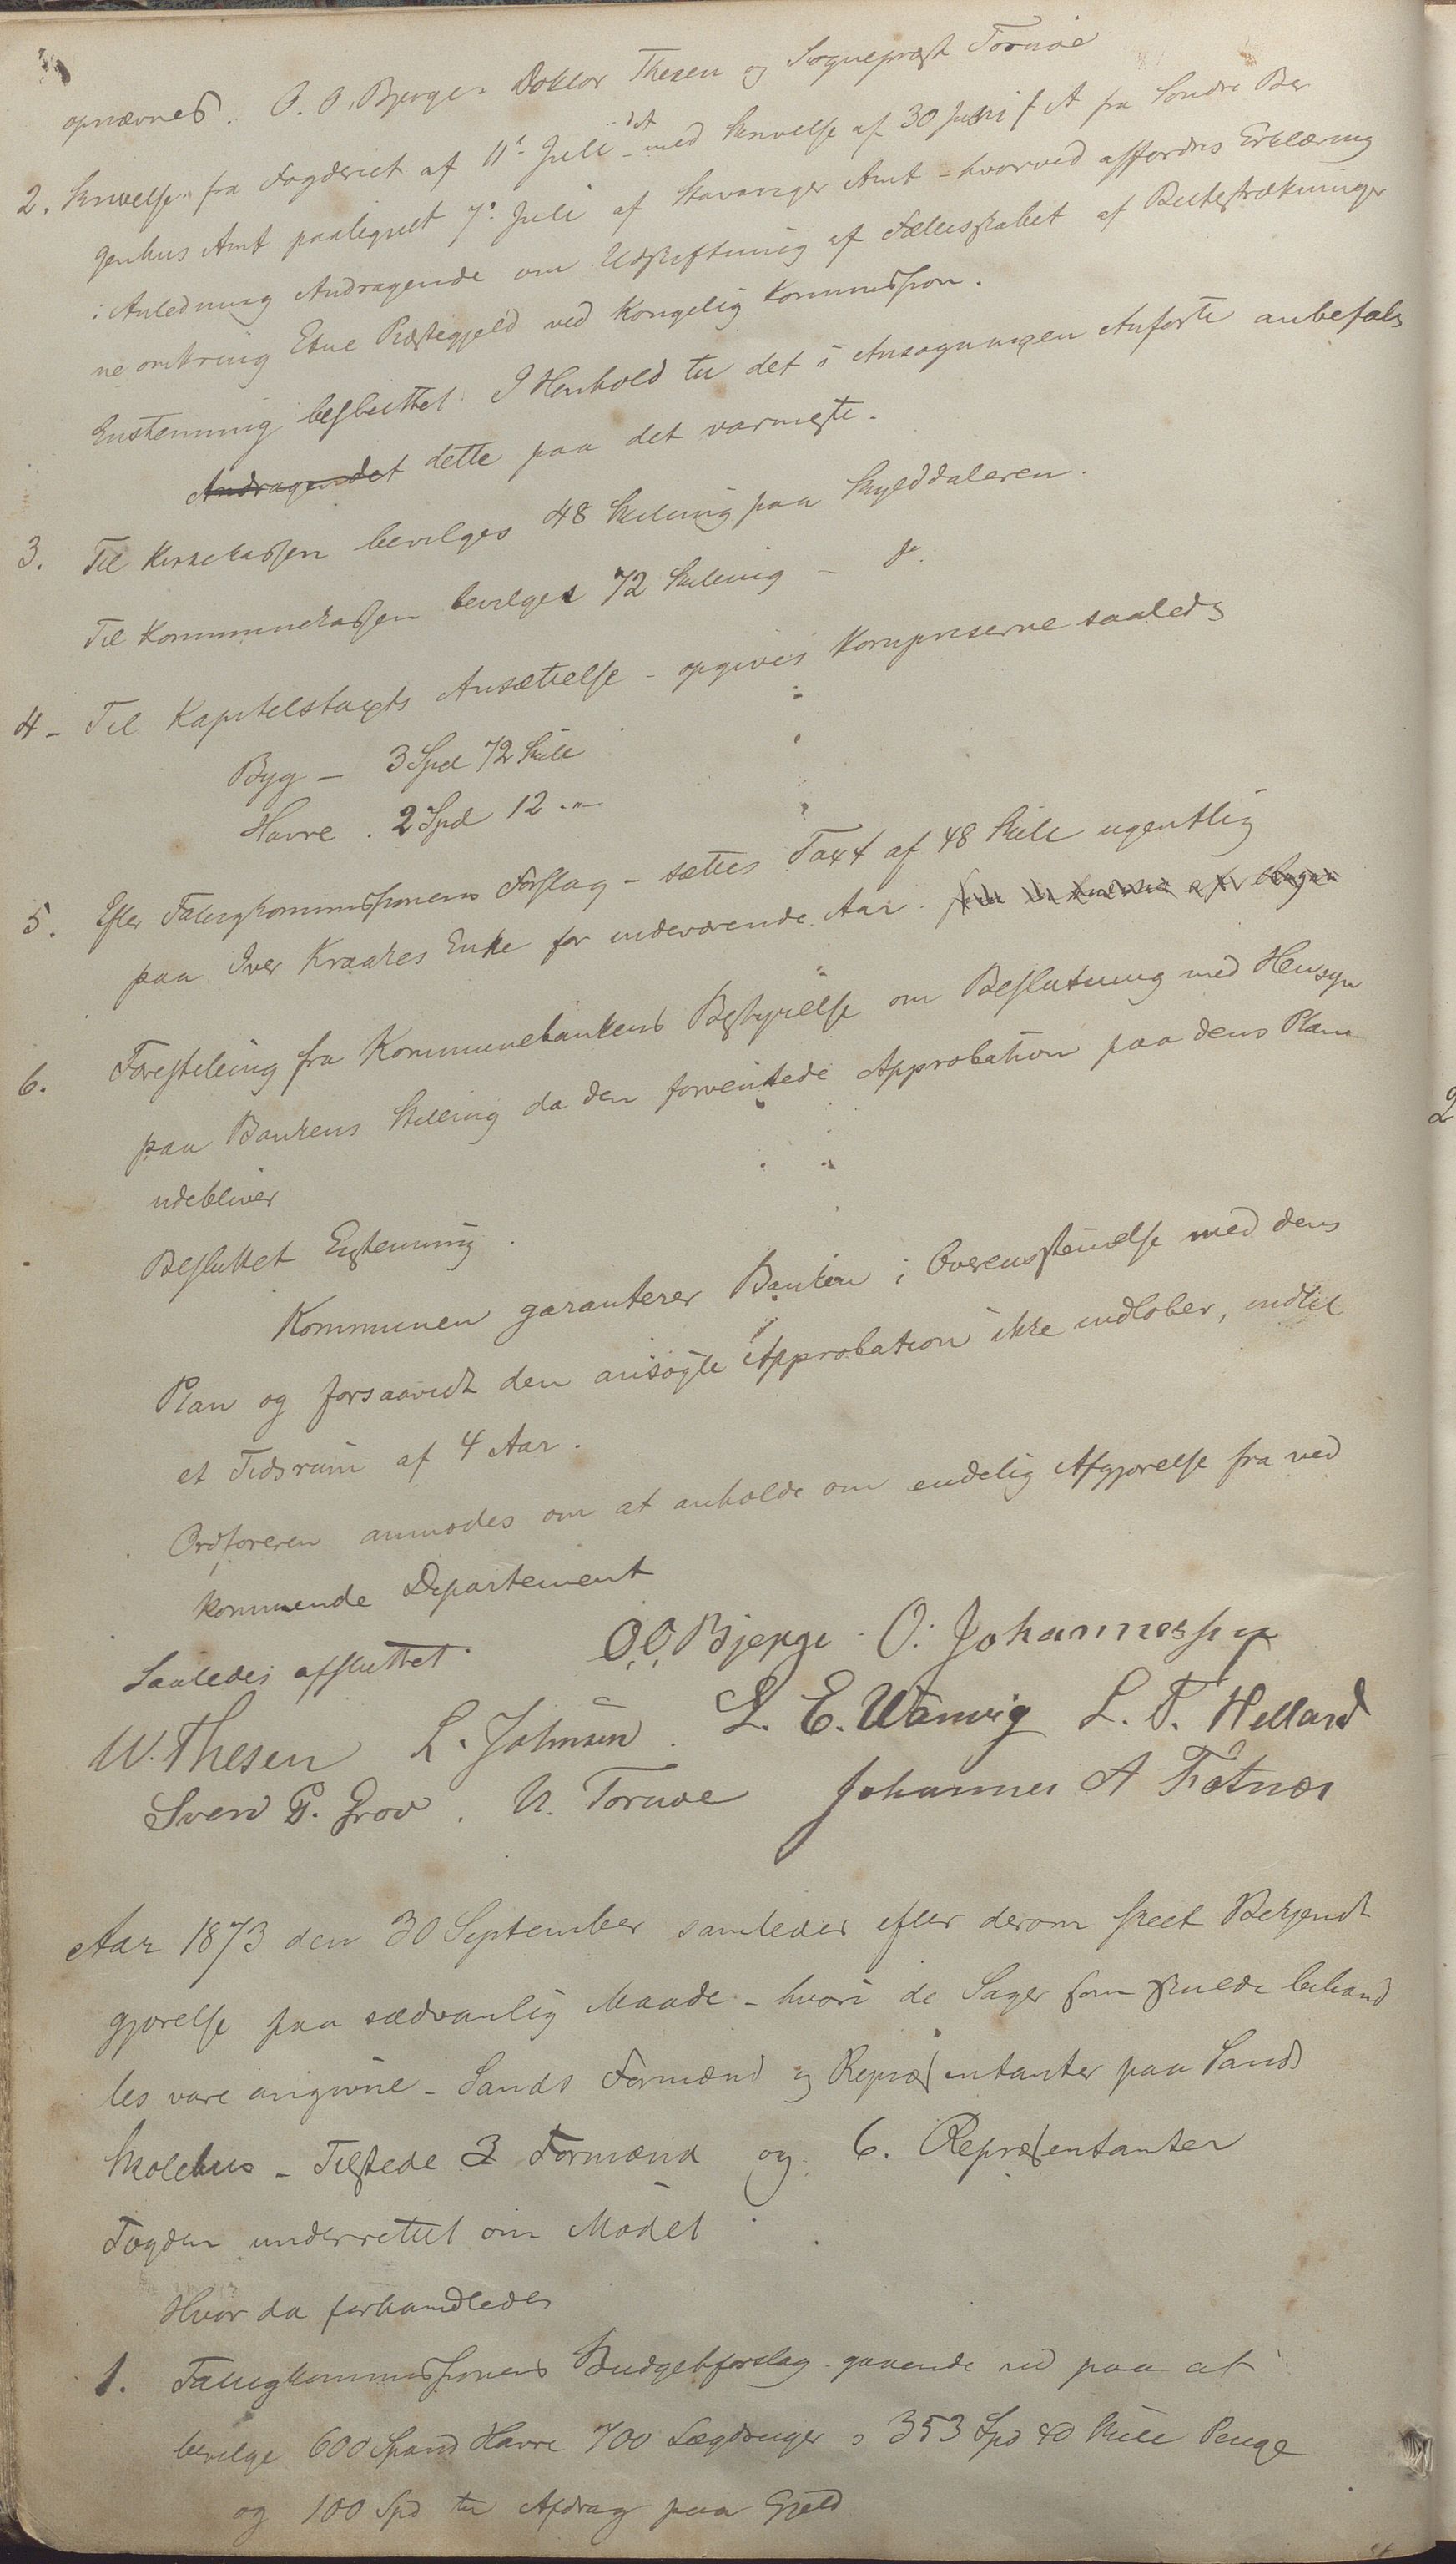 opnævnes. O. O. Bjerge, Doktor Thesen og Sognepræst Tornøe
2. Skrivelse fra Fogderiet af 11te Juli det med Skrivelse af 30 Juni f A fra Søndre Ber
genhus Amt paategnet 7de Juli af Stavanger Amt - hvorved affordres Erklæring
i Anledning Andragende om Udskiftning af Fællesskabet af Beitestrækninger
ne omkring Etne Præstegjeld ved Kongelig Kommission.
Enstemmig besluttet I Henhold til det i Ansøgningen Anførte anbefales
Andragendet dette paa det varmeste.
3. Til Kirkekassen bevilges 48 Skilling paa Skylddaleren.
Til Kommunekassen bevilges 72 Skilling - do
4 - Til Kapitelstaxts Ansættelse - opgives Kornpriserne saaledes
Byg - 3 Spd 72 Skill
Havre . 2 Spd 12 -"-
5. Efter Fatigkommissionens Forslag - sættes Taxt af 48 Skill ugentlig
paa Iver Kraakes Enke for indeværende Aar.
6. Forestilling fra Kommunebankens Bestyrelse om Beslutning med Hensyn
paa Bankens Stilling da den forventede Approbation paa dens Plan
udebliver
Besluttet Enstemmig.
Kommunen garanterer Banken i Overensstemmelse med dens
Plan og forsaavidt den ansøgte Approbation ikke indløber, indtil
et Tidsrum af 4 Aar.
Ordføreren anmodes om at anholde om endelig Afgjørelse fra ved
kommende Departement
Saaledes afsluttet. O. O. Bjerge. O. Johannessen
W. Thesen L. Johnsen. L. E. Wanvig L. T. Helland
Sven G. Grov. N. Tornøe Johannes A Fatnæs
Aar 1873 den 30 September samledes efter derom skeet Bekjendt
gjørelse paa sædvanlig Maade - hvori de Sager som skulde behand
les vare angivne - Sands Formænd og Repræsentanter paa Sands
Skolehus - Tilstede 3 Formænd og 6. Repræsentanter
Fogden underrettet om Mødet
Hvor da forhandledes
1. Fatigkommissionens Budgetforslag gaaende ud paa at
bevilge 600 Spand Havre 700 Lægdsuger, 353 Spd 80 Skill Penge
og 100 Spd til Afdrag paa Gjeld